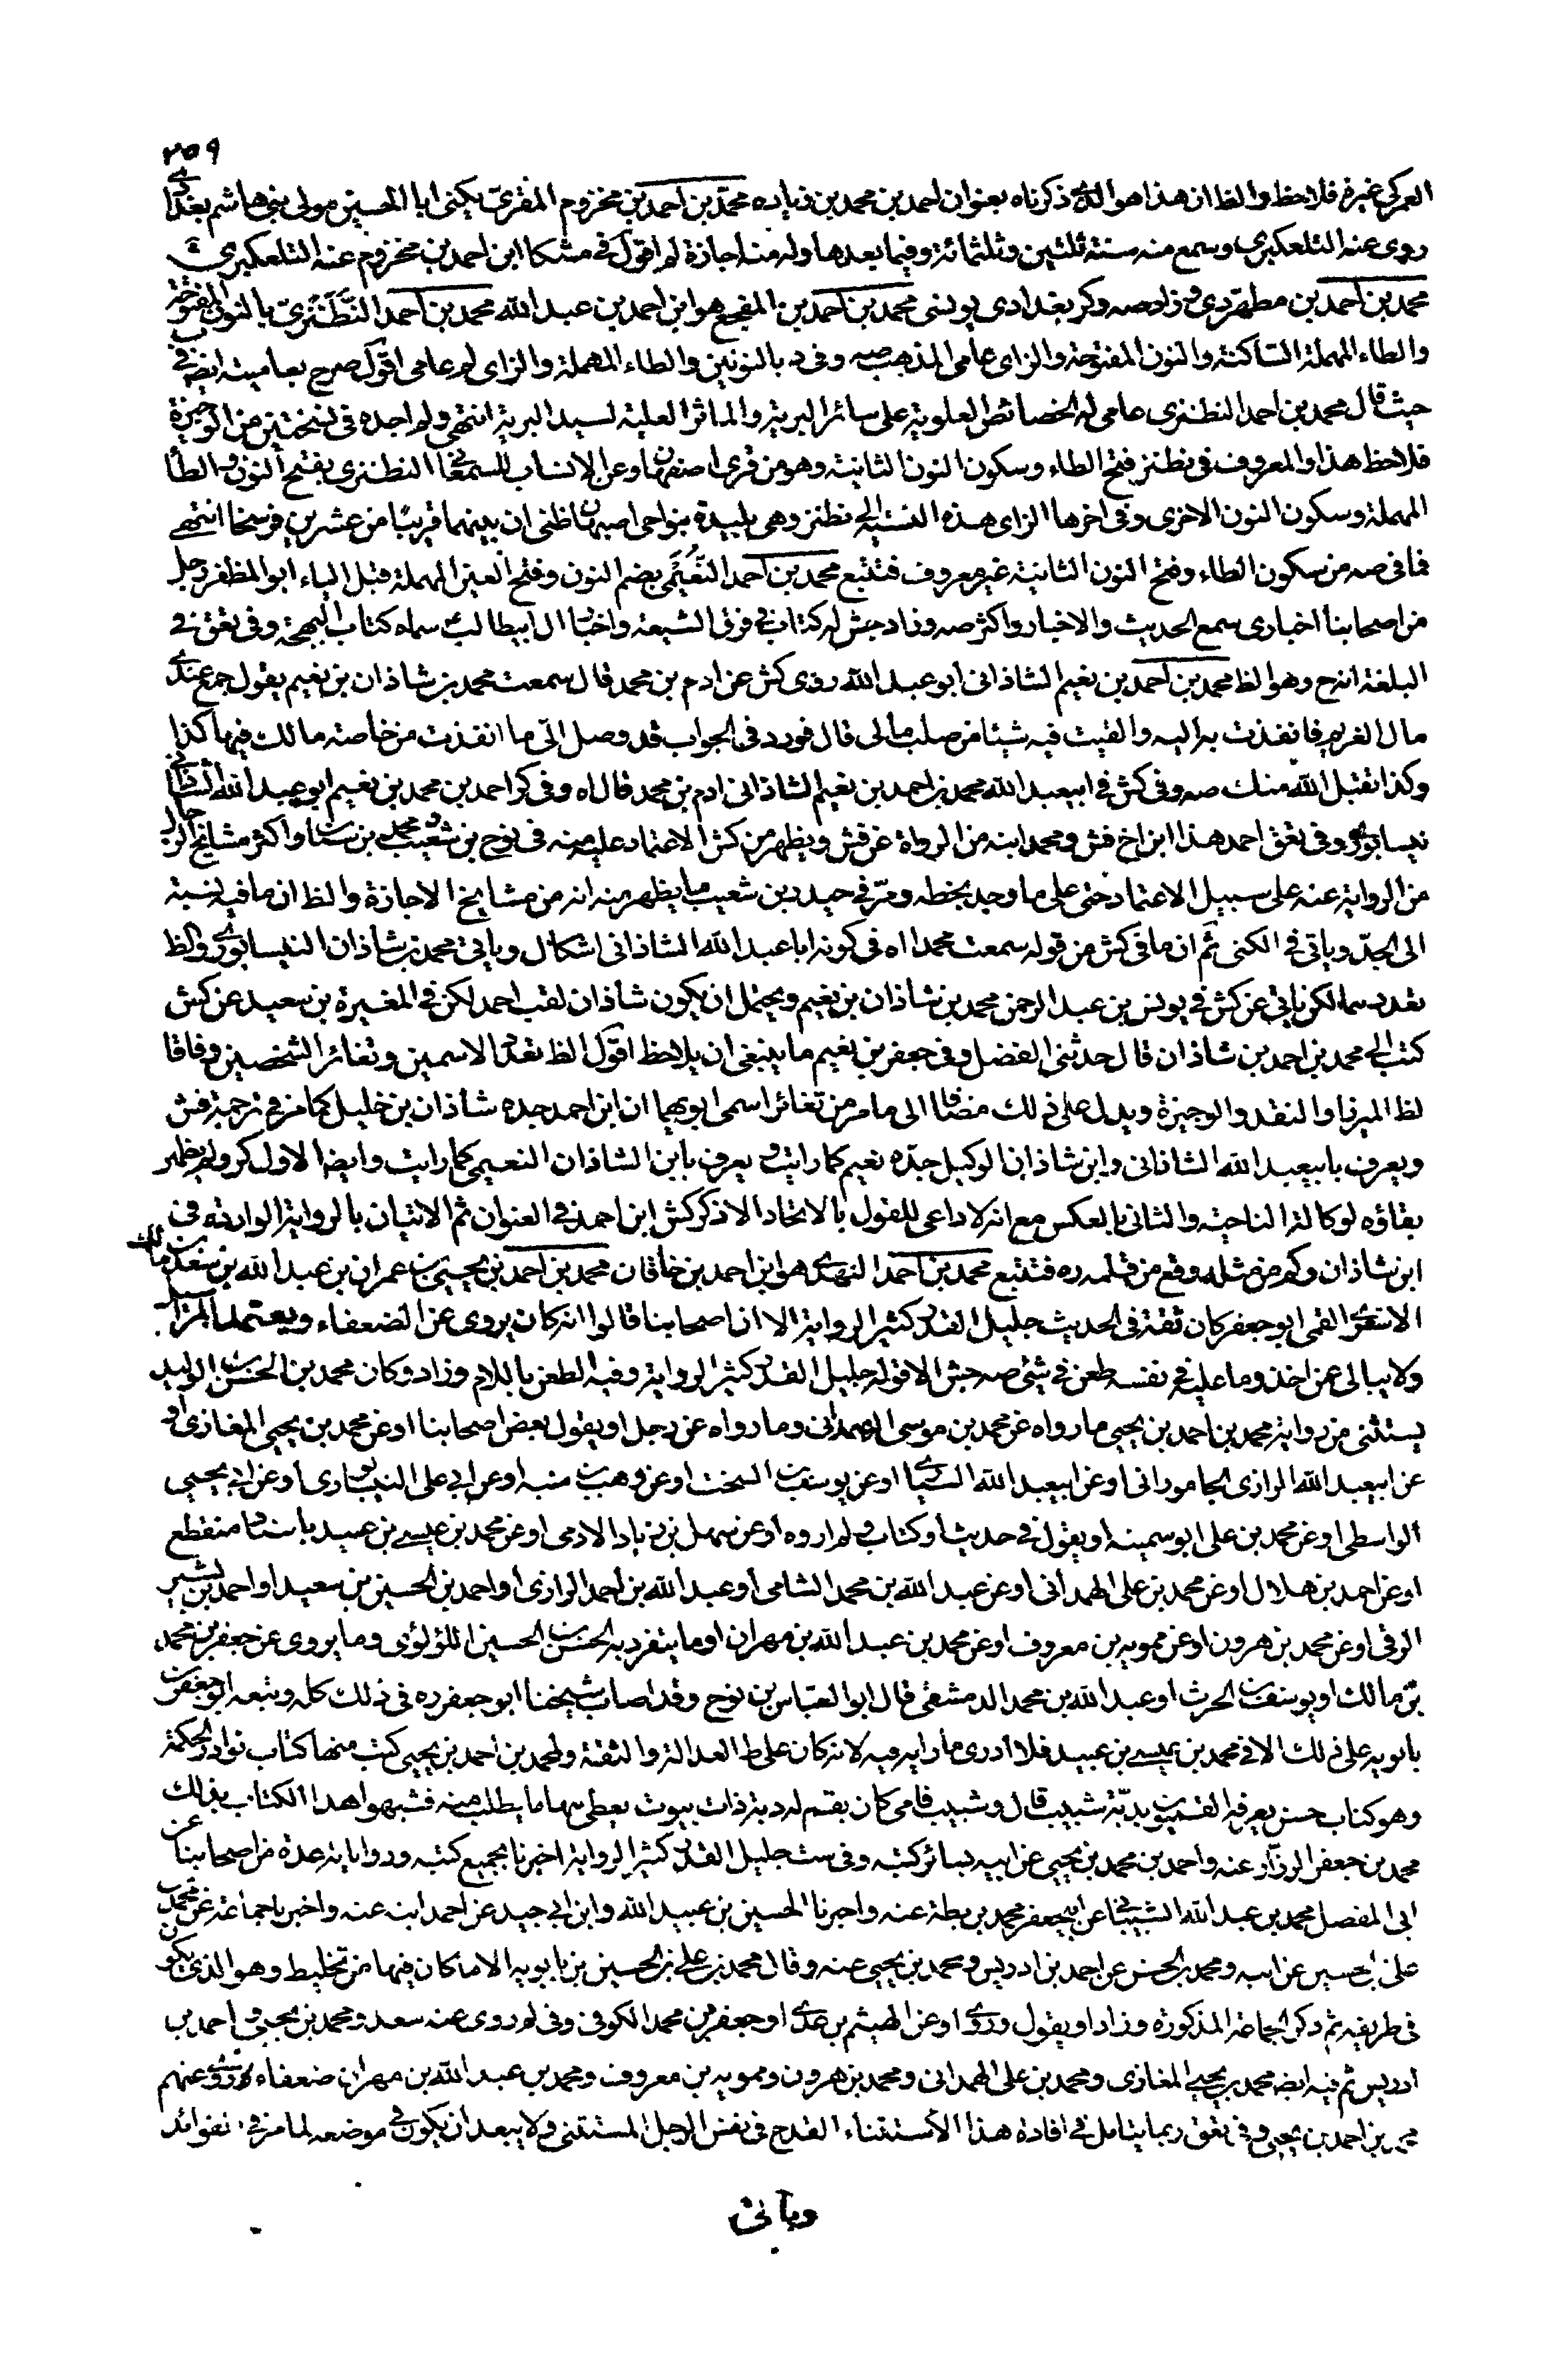 ٢٥٩
العمركي غيره فلاحظ والظ ان هذا هو الذي ذكرناه بعنوان احمد بن محمد بن زياده محمد بن احمد بن مخزوم المقرى يكنى ابا الحسين مولى بني هاشم بغدادي
روى عنه التلعكبرى وسمع منه سنة ثلثين وثلثمائة وفيما بعدها وله منه اجازة لم اقول في مشكا ابن احمد بن مخزوم عنه التلعكبرى
محمد بن احمد بن مطهر دى وزاد صه وكر بغدادى يونسى محمد بن احمد بن المفجع هو ابن احمد بن عبد الله محمد بن احمد النطنزى بالنون المفتوحة
والطاء المهملة الساكنة والنون المفتوحة والزاى عامى المذهب صه وفى د بالنونين والطاء المهملة والزاى لم عامى اقول صرح بعاميته ايضا في
حيث قال محمد بن احمد النطنزى عامى له الخصائص العلوية على سائر البرية والماثر العلية لسيد البرية انتهى ولم اجده فى نسختين من الوجيزة
فلاحظ هذا والمعروف فى نطنز فتح الطاء وسكون النون الثانية وهو من قرى اصفهان وعن الانساب للسمعانى النطنزى بفتح النون والطا
المهملة وسكون النون الاخرى وفى اخرها الزاى هذه النسبة الى نطنز وهى بليدة بنواحى اصبهان اظنى ان بينهما قريبًا من عشرين فرسخا انتهى
فما فى صه من سكون الطاء وفتح النون الثانية غير معروف فتتبع محمد بن احمد النعيمى بضم النون وفتح العين المهملة قبل الياء ابو المظفر رجل
من اصحابنا اخبارى سمع الحديث والاخبار واكثر صه وزاد جش له كتاب فى فرق الشيعة واخبار ال ابيطالب سماه كتاب البهجة وفى تعق فى
البلغة انه ح وهو الظ محمد بن احمد بن نعيم الشاذانى ابو عبد الله روى كش عن ادم بن محمد قال سمعت محمد بن شاذان بن نعيم يقول جمع عندى
مال الغريم فانفذت به اليه والقيت فيه شيئا من صلب مالى قال فورد فى الجواب قد وصل الىّ ما انفذت من خاصة مالك فيها كذا
وكذا تقبل الله منك صه وفى كش فى ابيعبد الله محمد بن احمد بن نعيم الشاذانى ادم بن محمد قال اه وفى كر احمد بن محمد بن نعيم ابو عبد الله الشاذانى
نيسابورى وفى تعق احمد هذا ابن اخ فش ومحمد ابنه من الرواة عن فش ويظهر من كش الاعتماد عليه منه فى نوح بن شعيب ومحمد بن سنان واكثر مشايخ الرجال
من الرواية عنه على سبيل الاعتماد حتى على ما وجد بخطه ومرّ فى حيدر بن شعيب ما يظهر منه انه من مشايخ الاجازة والظ ان ما فيه نسبة
الى الجدّ وياتى فى الكنى ثم ان ما فى كش من قوله سمعت محمدا اه فى كونه ابا عبد الله الشاذانى اشكال وياتى محمد بن شاذان النيسابورى والظ
تعددهما لكن ياتى عن كش فى يونس بن عبد الرحمن محمد بن شاذان بن نعيم ويحتمل ان يكون شاذان لقب احمد لكن فى المغيرة بن سعيد عن كش
كتب الى محمد بن احمد بن شاذان قال حدثنى الفضل وفى جعفر بن نعيم ما ينبغى ان يلاحظ اقول الظ تعدد الاسمين وتغائر الشخصين وفاقا
لظ الميرزا والنقد والوجيزة ويدل على ذلك مضافا الى ما مر من تغائر اسمى ابويهما ان ابن احمد جده شاذان بن خليل كما مر فى ترجمة فش
ويعرف بابيعبد الله الشاذانى وابن شاذان الوكيل جدّه نعيم كما رايت ويعرف بابن الشاذان النعيمى كما رايت وايضا الاول كر ولم يظهر
بقاؤه لوكالة الناحية والثانى بالعكس مع انه لا داعى للقول بالاتحاد الا ذكر كش ابن احمد فى العنوان ثم الاتيان بالرواية الواردة فى
ابن شاذان وكم من مثله وقع من قلمه ره فتتبع محمد بن احمد النهدى هو ابن احمد بن خاقان محمد بن احمد بن يحيى بن عمران بن عبد الله بن سعد بن مالك
الاشعرى القمى ابو جعفر كان ثقة فى الحديث جليل القدر كثير الرواية الا ان اصحابنا قالوا انه كان يروى عن الضعفاء ويعتمد المراسيل
ولا يبالى عمن اخذ وما عليه فى نفسه طعن فى شئ صه جش الا قوله جليل القدر كثير الرواية وفيه الطعن باللام وزاد وكان محمد بن الحسن بن الوليد
يستثنى من رواية محمد بن احمد بن يحيى ما رواه عن محمد بن موسى الهمدانى وما رواه عن رجل او يقول بعض اصحابنا او عن محمد بن يحيى المعاذى او
عن ابيعبد الله الرازى الجامورانى او عن ابيعبد الله السيارى او عن يوسف بن السخت او عن وهب بن منبه او عن ابى على النيسابورى او عن ابى يحيى
الواسطى او عن محمد بن على ابو سمينه او يقول فى حديث او كتاب ولم اروه او عن سهل بن زياد الادمى او عن محمد بن عيسى بن عبيد باسناد منقطع
او عن احمد بن هلال او عن محمد بن على الهمدانى او عن عبد الله بن محمد الشامى او عبد الله بن احمد الرازى او احمد بن الحسين بن سعيد او احمد بن بشير
الرقى او عن محمد بن هرون او عن ممويه بن معروف او عن محمد بن عبد الله بن مهران او ما يتفرد به الحسن بن الحسين اللؤلؤى وما يروى عن جعفر بن محمد
بن مالك او يوسف بن الحرث او عبد الله بن محمد الدمشقى قال ابو العباس بن نوح وقد اصاب شيخنا ابو جعفر ره فى ذلك كله وتبعه ابو جعفر بن
بابويه على ذلك الا فى محمد بن عيسى بن عبيد فلا ادرى ما رابه فيه لانه كان على ظ العدالة والثقة ولمحمد بن احمد بن يحيى كتب منها كتاب نوادر الحكمة
وهو كتاب حسن يعرفه القميون بدبّة شبيب قال وشبيب فامى كان بقم له دبة ذات بيوت يعطى منها ما يطلب منه فشبهوا هذا الكتاب بذلك
محمد بن جعفر الرزّاز عنه واحمد بن محمد بن يحيى عن ابيه بسائر كتبه وفى ست جليل القدر كثير الرواية اخبرنا بجميع كتبه ورواياته عدة من اصحابنا عن
ابى المفضل محمد بن عبد الله الشيبانى عن ابى جعفر محمد بن بطة عنه واخبرنا الحسين بن عبيد الله وابن ابى جيد عن احمد ابنه عنه واخبرنا جماعة عن محمد بن
على بن الحسين عن ابيه ومحمد بن الحسن عن احمد بن ادريس ومحمد بن يحيى عنه وقال محمد بن على بن الحسين بن بابويه الا ما كان فيها من تخليط وهو الذى يكون
فى طريقه ثم ذكر الجماعة المذكورة وزاد او يقول وروى او عن الهيثم بن عدى او جعفر بن محمد الكوفى وفى لم روى عنه سعد ومحمد بن يحيى واحمد بن
ادريس ثم فيه ايضا محمد بن يحيى المعاذى ومحمد بن على الهمدانى ومحمد بن هرون وممويه بن معروف ومحمد بن عبد الله بن مهران ضعفاء روى عنهم
محمد بن احمد بن يحيى وفى تعق ربما يتامل فى افادة هذا الاستثناء القدح فى نفس الرجل المستثنى ولا يبعد ان يكون فى موضعه لما مر فى الفوائد
وياتى